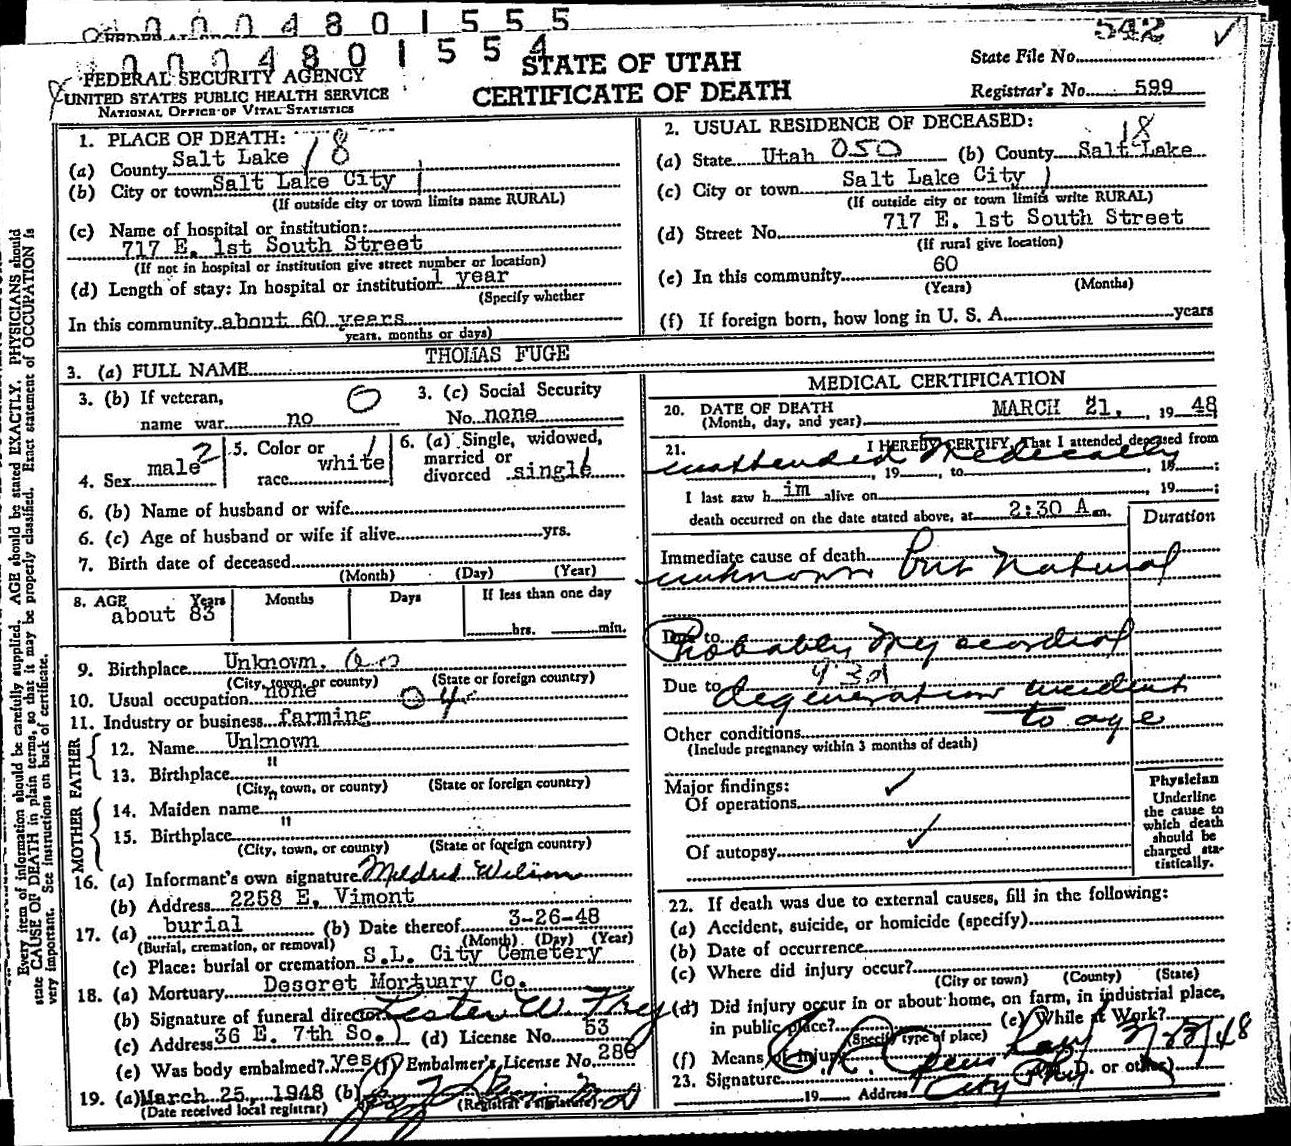 0004801555
0004801554
542 ✓
FEDERAL SECURITY AGENCY
UNITED STATES PUBLIC HEALTH SERVICE
NATIONAL OFFICE OF VITAL STATISTICS
STATE OF UTAH
CERTIFICATE OF DEATH
State File No.
Registrar's No. 599
Every item of information should be carefully supplied. AGE should be stated EXACTLY. PHYSICIANS should
state CAUSE OF DEATH in plain terms, so that it may be properly classified. Exact statement of OCCUPATION is
very important. See instructions on back of certificate.
1. PLACE OF DEATH:
(a) County Salt Lake 18
(b) City or town Salt Lake City 1
(If outside city or town limits name RURAL)
(c) Name of hospital or institution:
717 E. 1st South Street
(If not in hospital or institution give street number or location)
(d) Length of stay: In hospital or institution 1 year
(Specify whether
In this community about 60 years
years, months or days)
2. USUAL RESIDENCE OF DECEASED:
18
(a) State Utah 050 (b) County Salt Lake
(c) City or town Salt Lake City 1
(If outside city or town limits write RURAL)
(d) Street No. 717 E. 1st South Street
(If rural give location)
(e) In this community 60
(Years) (Months)
(f) If foreign born, how long in U. S. A. years
3. (a) FULL NAME THOMAS FUGE
3. (b) If veteran,
name war no 0
3. (c) Social Security
No. none
4. Sex male 2
5. Color or
race white 1
6. (a) Single, widowed,
married or
divorced single 1
6. (b) Name of husband or wife
6. (c) Age of husband or wife if alive yrs.
7. Birth date of deceased
(Month) (Day) (Year)
8. AGE Years Months Days If less than one day
about 83
hrs. min.
9. Birthplace Unknown.
(City, town, or county) (State or foreign country)
10. Usual occupation none 04
11. Industry or business farming
FATHER
12. Name Unknown
13. Birthplace "
(City, town, or county) (State or foreign country)
MOTHER
14. Maiden name "
15. Birthplace "
(City, town, or county) (State or foreign country)
16. (a) Informant's own signature Mildred Wilson
(b) Address 2258 E. Vimont
17. (a) burial (b) Date thereof 3-26-48
(Burial, cremation, or removal) (Month) (Day) (Year)
(c) Place: burial or cremation S.L. City Cemetery
18. (a) Mortuary Deseret Mortuary Co.
(b) Signature of funeral director Lester W. Frey
(c) Address 36 E. 7th So. (d) License No. 53
(e) Was body embalmed? yes (f) Embalmer's License No. 280
19. (a) March 25, 1948 (b)
(Date received local registrar) (Registrar's signature)
MEDICAL CERTIFICATION
20. DATE OF DEATH MARCH 21, 19 48
(Month, day, and year)
21. I HEREBY CERTIFY, That I attended deceased from
unattended Medically , 19 , to , 19 ;
I last saw h im alive on , 19 ;
death occurred on the date stated above, at 2:30 A m.
Duration
Immediate cause of death
unknown but Natural
Due to
Probably Myocardial
93d
Due to
degeneration incident
to age
Other conditions
(Include pregnancy within 3 months of death)
Major findings:
Of operations ✓
Of autopsy ✓
Physician
Underline
the cause to
which death
should be
charged sta-
tistically.
22. If death was due to external causes, fill in the following:
(a) Accident, suicide, or homicide (specify)
(b) Date of occurrence
(c) Where did injury occur?
(City or town) (County) (State)
(d) Did injury occur in or about home, on farm, in industrial place,
in public place? (e) While at Work?
(Specify type of place)
(f) Means of injury
23. Signature (M. D. or other)
19 Address City Phy